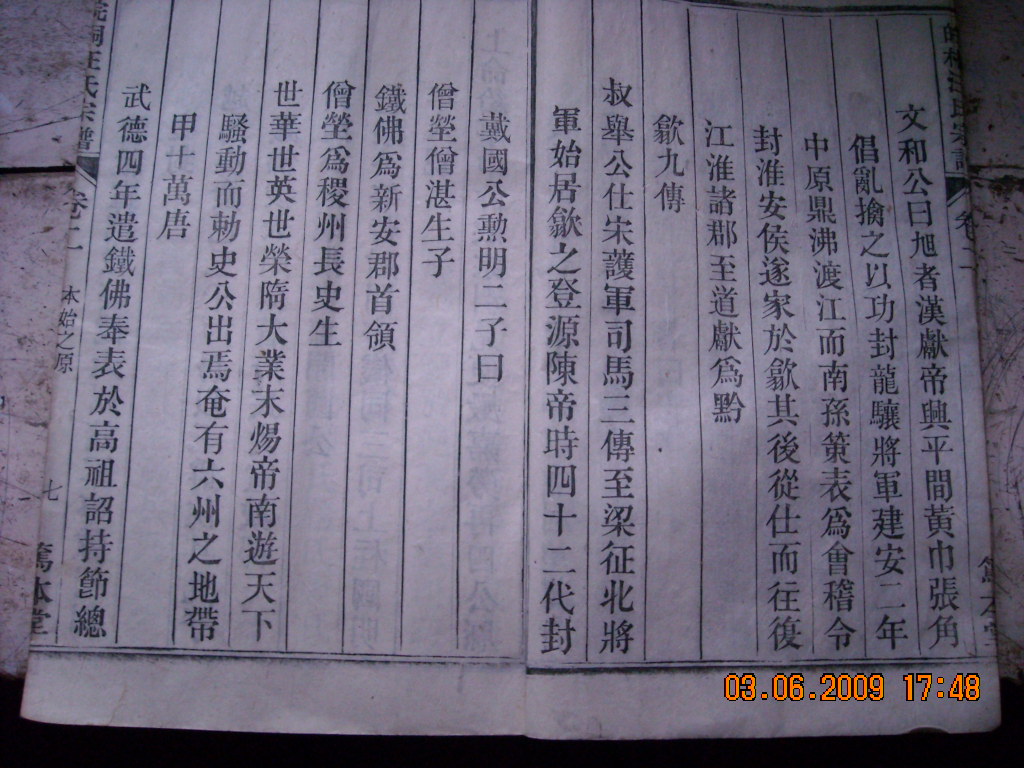 文和公曰旭者漢獻帝興平間黃巾張角
倡亂擒之以功封龍驤將軍建安二年
中原鼎沸渡江而南孫策表爲會稽令
封淮安侯遂家於歙其後從仕而往復
江淮諸郡至道獻爲黟
歙九傳
叔舉公仕宋護軍司馬三傳至梁征北將
軍始居歙之登源陳帝時四十二代封
戴國公勲明二子曰
僧塋僧湛生子
鐵佛爲新安郡首領
僧塋爲稷州長史生
世華世英世榮隋大業末煬帝南遊天下
騷動而勅史公出焉奄有六州之地帶
甲十萬唐
武德四年遣鐵佛奉表於高祖詔持節總
皖桐汪氏宗譜 卷二 本始之原 七 篤本堂
03.06.2009 17:48